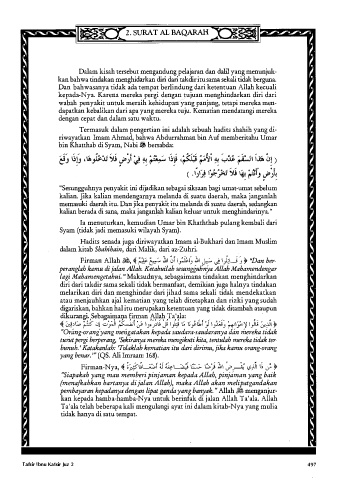 2. SURAT AL BAQARAH
Dalam kisah tersebut mengandung pelajaran dan dalil yang menunjuk-
kan bahwa tindakan menghindarkan diri dari takdir itu sama sekali tidak berguna.
Dan bahwasanya tidak ada tempat berlindung dari ketentuan Allah kecuali
kepada-Nya. Karena mereka pergi dengan tujuan menghindarkan diri dari
wabah penyakit untuk meraih kehidupan yang panjang, tetapi mereka men-
dapatkan kebalikan dari apa yang mereka tuju. Kematian mendatangi mereka
dengan cepat dan dalam satu waktu.
Termasuk dalam pengertian ini adalah sebuah hadits shahih yang di-
riwayatkan Imam Ahmad, bahwa Abdurrahman bin Auf memberitahu Umar
bin Khathab di Syam, Nabi ﷺ bersabda:
( إِنَّ هَذَا السَّقَمَ عُذِّبَ بِهِ الْأُمَمُ قَبْلَكُمْ، فَإِذَا سَمِعْتُمْ بِهِ فِي أَرْضٍ فَلَا تَدْخُلُوهَا، وَإِذَا وَقَعَ
بِأَرْضٍ وَأَنْتُمْ بِهَا فَلَا تَخْرُجُوا فِرَارًا. )
"Sesungguhnya penyakit ini dijadikan sebagai siksaan bagi umat-umat sebelum
kalian. Jika kalian mendengarnya melanda di suatu daerah, maka janganlah
memasuki daerah itu. Dan jika penyakit itu melanda di suatu daerah, sedangkan
kalian berada di sana, maka janganlah kalian keluar untuk menghindarinya."
Ia menuturkan, kemudian Umar bin Khaththab pulang kembali dari
Syam (tidak jadi memasuki wilayah Syam).
Hadits senada juga diriwayatkan Imam al-Bukhari dan Imam Muslim
dalam kitab Shahihain, dari Malik, dari az-Zuhri.
Firman Allah ﷻ, ﴿ وَقَاتِلُوا فِي سَبِيلِ اللَّهِ وَاعْلَمُوا أَنَّ اللَّهَ سَمِيعٌ عَلِيمٌ ﴾ "Dan ber-
peranglah kamu di jalan Allah. Ketahuilah sesungguhnya Allah Mahamendengar
lagi Mahamengetahui." Maksudnya, sebagaimana tindakan menghindarkan
diri dari takdir sama sekali tidak bermanfaat, demikian juga halnya tindakan
melarikan diri dan menghindar dari jihad sama sekali tidak mendekatkan
atau menjauhkan ajal kematian yang telah ditetapkan dan rizki yang sudah
digariskan, bahkan hal itu merupakan ketentuan yang tidak ditambah ataupun
dikurangi. Sebagaimana firman Allah Ta'ala:
﴿ الَّذِينَ قَالُوا لِإِخْوَانِهِمْ وَقَعَدُوا لَوْ أَطَاعُونَا مَا قُتِلُوا قُلْ فَادْرَءُوا عَنْ أَنفُسِكُمُ الْمَوْتَ إِن كُنتُمْ صَادِقِينَ ﴾
"Orang-orang yang mengatakan kepada saudara-saudaranya dan mereka tidak
turut pergi berperang, 'Sekiranya mereka mengikuti kita, tentulah mereka tidak ter-
bunuh.' Katakanlah: 'Tolaklah kematian itu dari dirimu, jika kamu orang-orang
yang benar.'" (QS. Ali Imraan: 168).
Firman-Nya, ﴿ مَّن ذَا الَّذِي يُقْرِضُ اللَّهَ قَرْضًا حَسَنًا فَيُضَاعِفَهُ لَهُ أَضْعَافًا كَثِيرَةً ﴾
"Siapakah yang mau memberi pinjaman kepada Allah, pinjaman yang baik
(menafkahkan hartanya di jalan Allah), maka Allah akan melipatgandakan
pembayaran kepadanya dengan lipat ganda yang banyak." Allah ﷻ menganjur-
kan kepada hamba-hamba-Nya untuk berinfak di jalan Allah Ta'ala. Allah
Ta'ala telah beberapa kali mengulangi ayat ini dalam kitab-Nya yang mulia
tidak hanya di satu tempat.
Tafsir Ibnu Katsir Juz 2
497